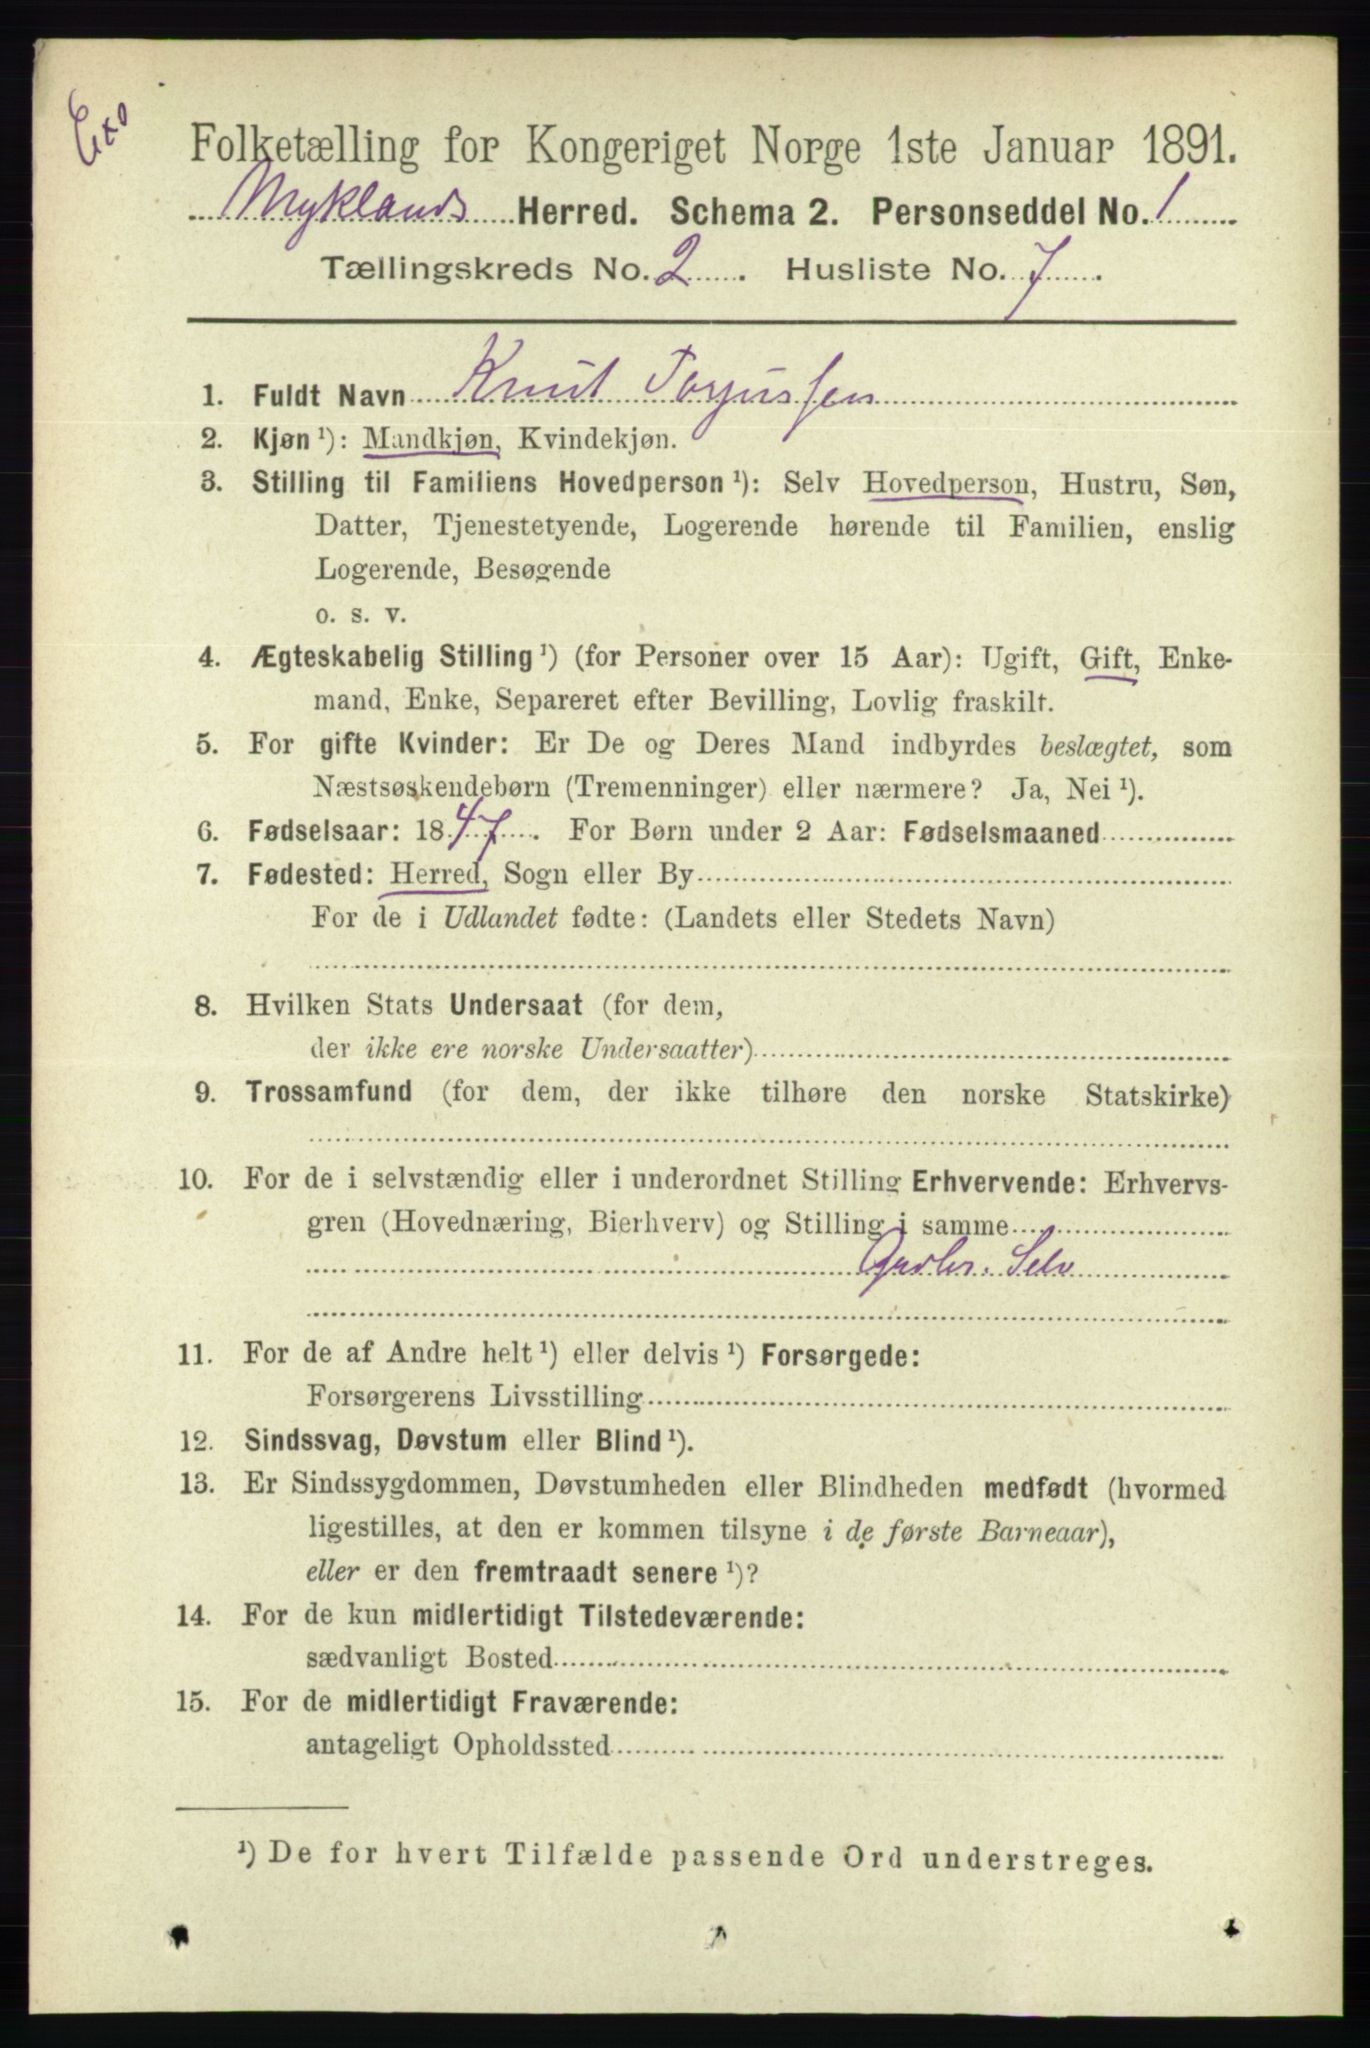 Exo
Folketælling for Kongeriget Norge 1ste Januar 1891.
Myklands Herred. Schema 2. Personseddel No. 1
Tællingskreds No. 2. Husliste No. 7.
1. Fuldt Navn Knut Torjussen
2. Kjøn ¹): Mandkjøn, Kvindekjøn.
3. Stilling til Familiens Hovedperson ¹): Selv Hovedperson, Hustru, Søn,
Datter, Tjenestetyende, Logerende hørende til Familien, enslig
Logerende, Besøgende
o. s. v.
4. Ægteskabelig Stilling ¹) (for Personer over 15 Aar): Ugift, Gift, Enke-
mand, Enke, Separeret efter Bevilling, Lovlig fraskilt.
5. For gifte Kvinder: Er De og Deres Mand indbyrdes beslægtet, som
Næstsøskendebørn (Tremenninger) eller nærmere? Ja, Nei ¹).
6. Fødselsaar: 1847. For Børn under 2 Aar: Fødselsmaaned
7. Fødested: Herred, Sogn eller By
For de i Udlandet fødte: (Landets eller Stedets Navn)
8. Hvilken Stats Undersaat (for dem,
der ikke ere norske Undersaatter)
9. Trossamfund (for dem, der ikke tilhøre den norske Statskirke)
10. For de i selvstændig eller i underordnet Stilling Erhvervende: Erhvervs-
gren (Hovednæring, Bierhverv) og Stilling i samme
Selv
11. For de af Andre helt ¹) eller delvis ¹) Forsørgede:
Forsørgerens Livsstilling
12. Sindssvag, Døvstum eller Blind ¹).
13. Er Sindssygdommen, Døvstumheden eller Blindheden medfødt (hvormed
ligestilles, at den er kommen tilsyne i de første Barneaar),
eller er den fremtraadt senere ¹)?
14. For de kun midlertidigt Tilstedeværende:
sædvanligt Bosted
15. For de midlertidigt Fraværende:
antageligt Opholdssted
¹) De for hvert Tilfælde passende Ord understreges.